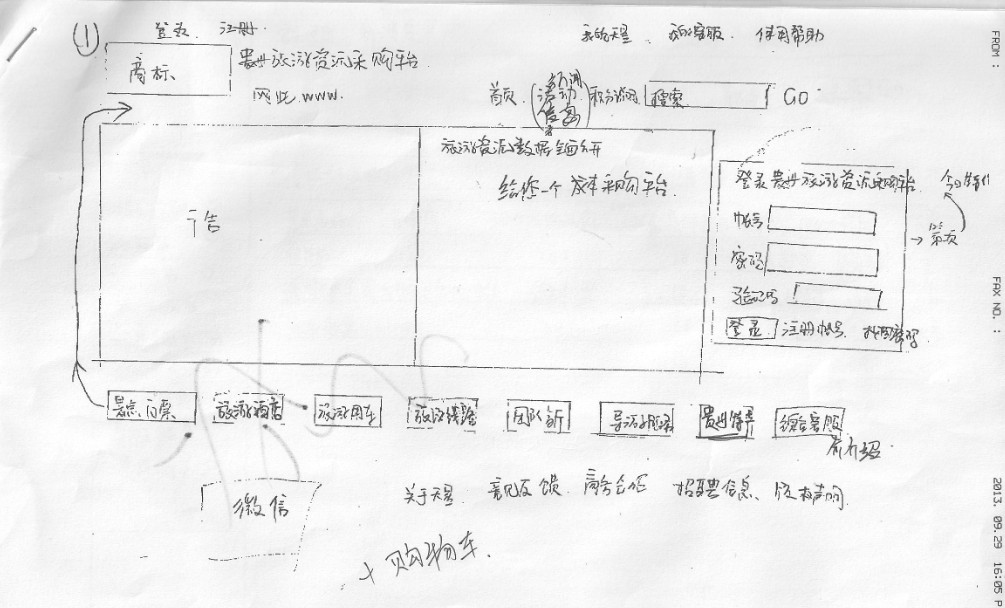 (1)
登录 注册
我的天星、我的客服、使用帮助
商标
贵州旅游资源采购平台
网址 www.
首页 活动 积分 搜索 GO
旅游资源数据全面公开
给您一个成本采购平台
广告
登录贵州旅游资源采购平台
帐号
密码
验证码
登录 注册帐号 找回密码
景点门票 旅游酒店 旅游用车 旅游线路 团队 导游服务 贵州特产 客服
介绍
微信
关于天星 意见反馈 商务合作 招聘信息、版权声明
+购物车
FROM :
FAX NO. :
2013. 09.29 16:05 P